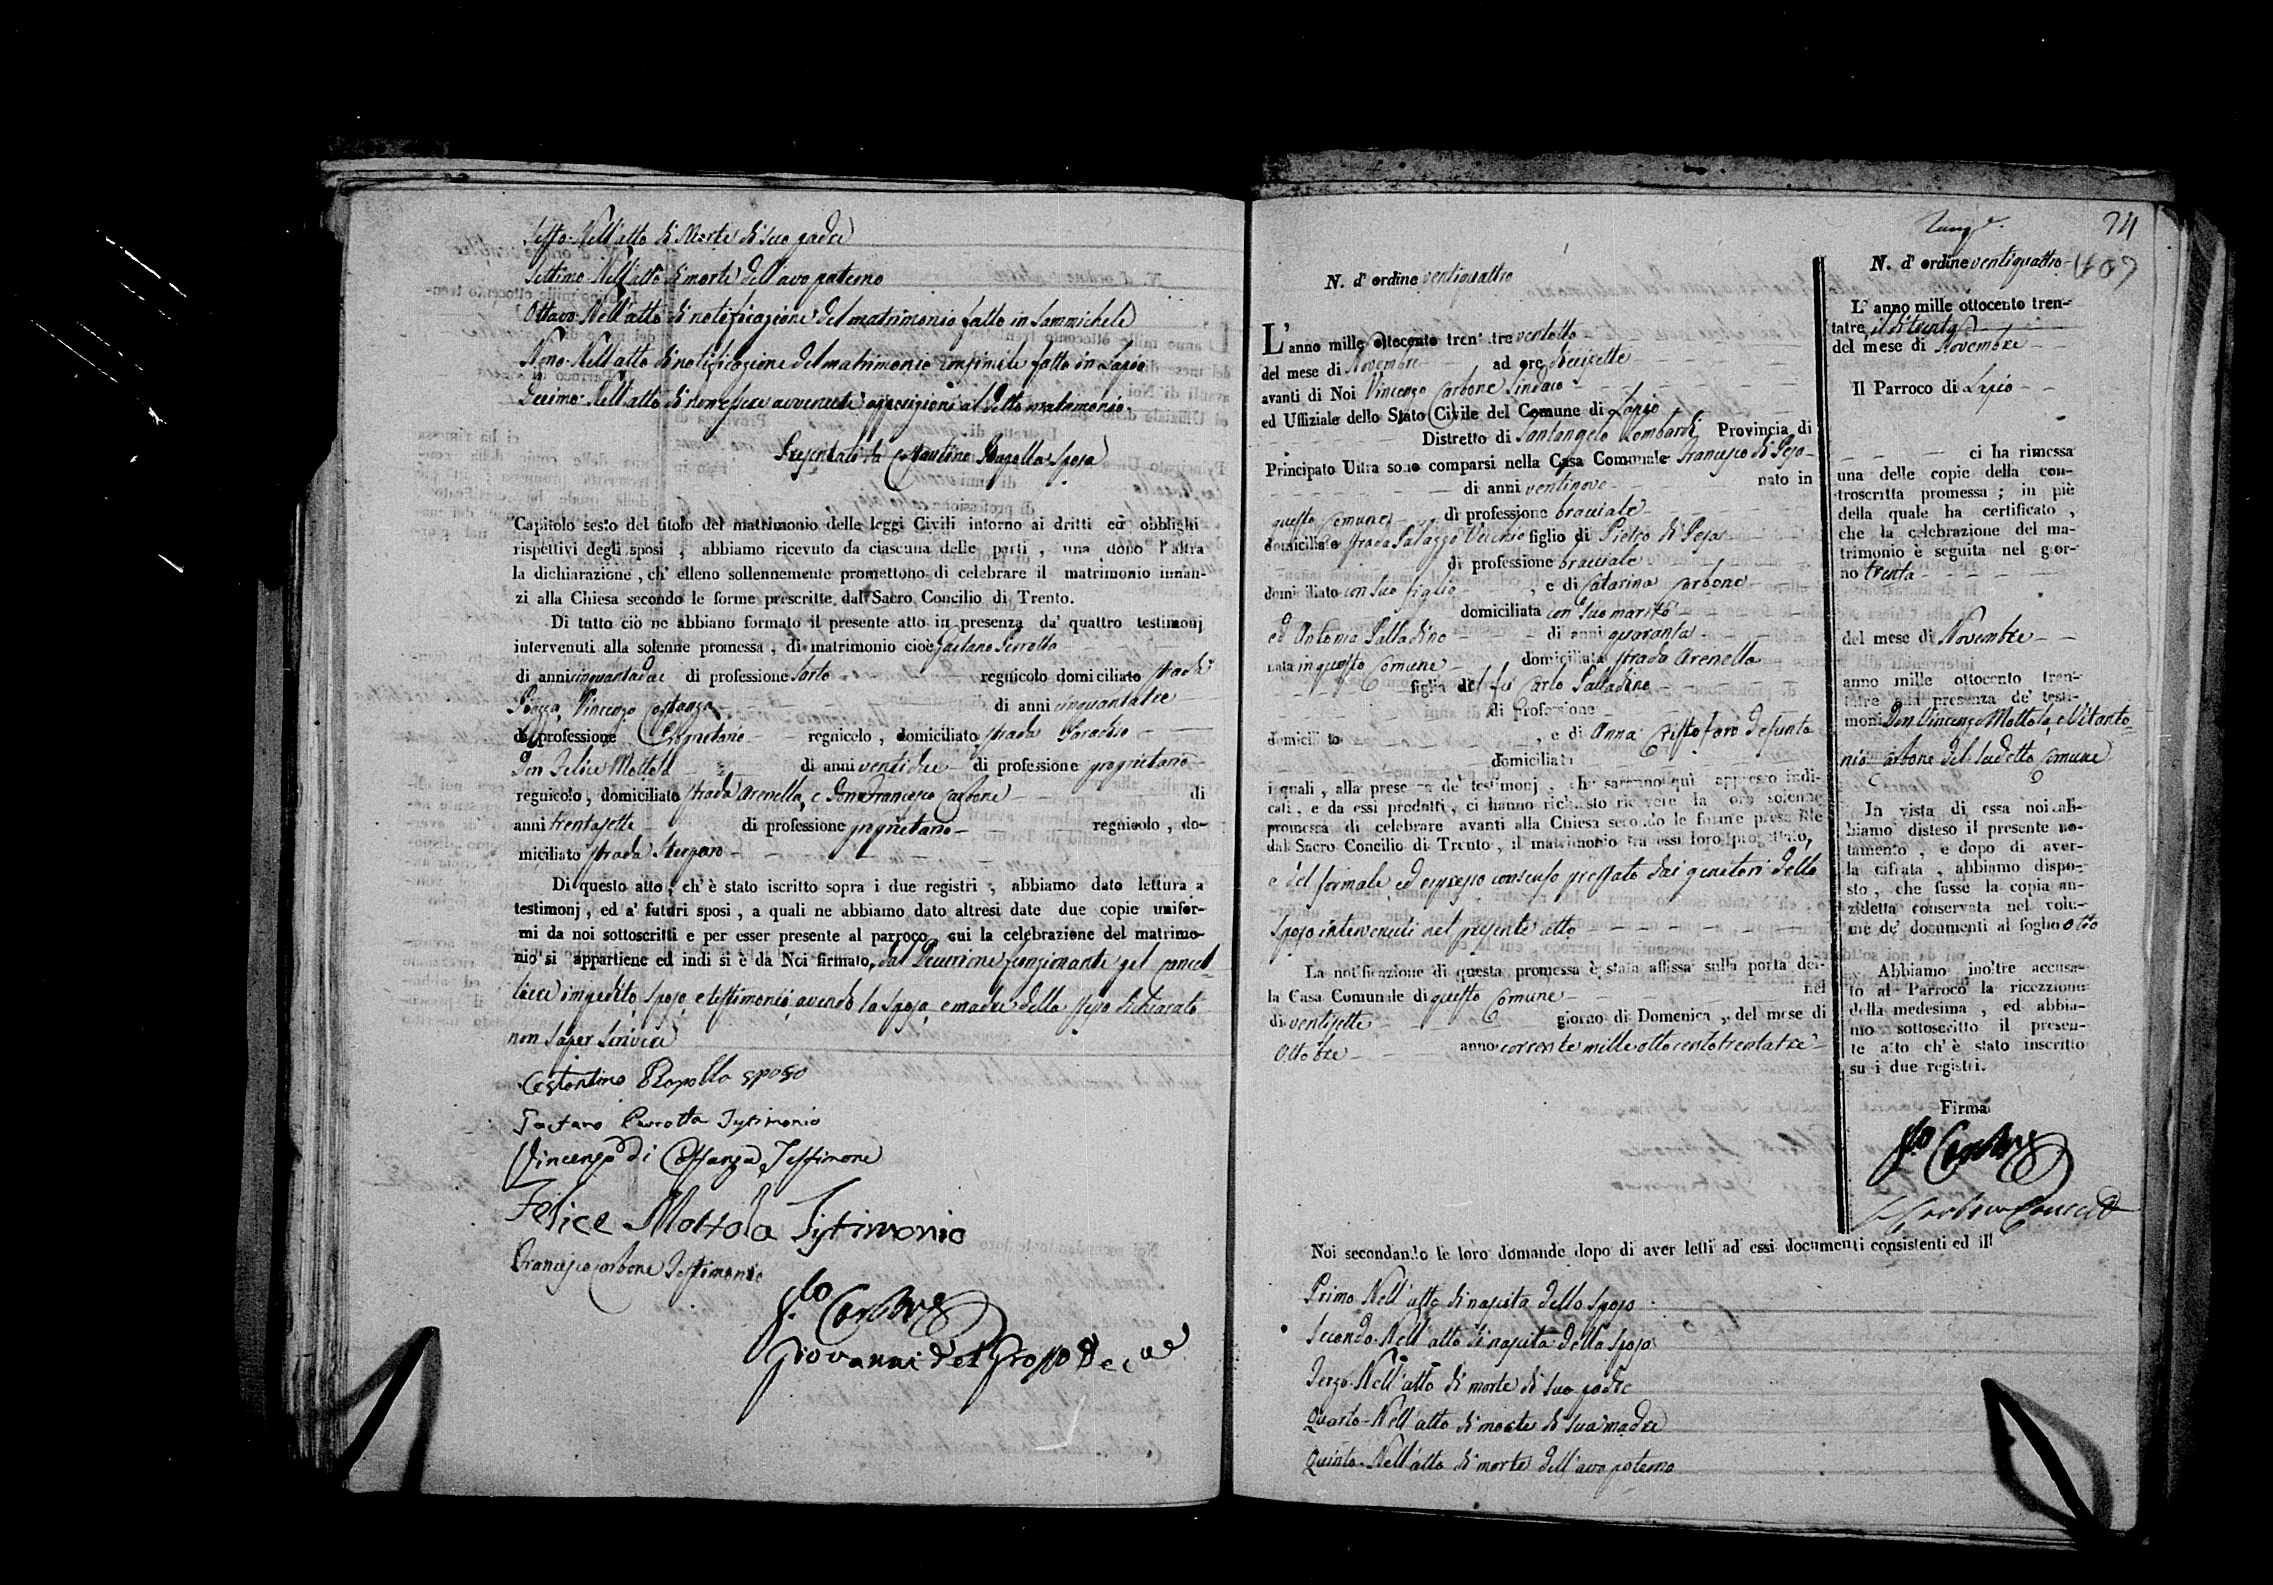 Sesto. Nell'atto di Morte di suo padre
Settimo. Nell'atto di morte dell'avo paterno
Ottavo. Nell'atto di notificazione del matrimonio fatto in Sammichele
Nono. Nell'atto di notificazione del matrimonio consimile fatto in Lapio
Decimo. Nell'atto di non essere avvenute opposizioni al detto matrimonio.
Presentato da Costantino Rapolla sposo
Capitolo sesto del titolo del matrimonio delle leggi Civili intorno ai dritti ed obblighi
rispettivi degli sposi , abbiamo ricevuto da ciascuna delle parti , una dopo l'altra
la dichiarazione , ch' elleno sollennemente promettono di celebrare il matrimonio innan-
zi alla Chiesa secondo le forme prescritte dal Sacro Concilio di Trento.
Di tutto ciò ne abbiano formato il presente atto in presenza da' quattro testimonj
intervenuti alla solenne promessa , di matrimonio cioè Gaetano Perrotta
di anni cinquantadue di professione sarto regnicolo domiciliato strada
Piazza, Vincenzo Costanza di anni cinquantatre
di professione Proprietario regnicolo , domiciliato strada Paradiso
Don Felice Mottola di anni ventidue di professione proprietario
regnicolo , domiciliato strada Arenella, e Don Francesco Carbone di
anni trentasette di professione proprietario regnicolo , do-
miciliato strada
Di questo atto , ch' è stato iscritto sopra i due registri , abbiamo dato lettura a
testimonj , ed a' futuri sposi , a quali ne abbiamo dato altresì date due copie unifor-
mi da noi sottoscritti e per esser presente al parroco cui la celebrazione del matrimo-
nio si appartiene ed indi si è da Noi firmato, dal Decurione funzionante pel cancel-
liere impedito, sposo, e testimonii, avendo la sposa, e madre dello sposo dichiarato
non saper scrivere
Costantino Rapolla sposo
Gaetano Perrotta Testimonio
Vincenzo di Costanza Testimone
Felice Mottola Testimonio
Francesco Carbone Testimonio
V.zo Carbone
Giovanni del Grosso Dec.ne
24
N. d' ordine ventiquattro
L' anno mille ottocento tren-tatre ventotto
del mese di Novembre ad ore diecisette
avanti di Noi Vincenzo Carbone Sindaco
ed Uffiziale dello Stato Civile del Comune di Lapio
Distretto di Santangelo Lombardi Provincia di
Principato Ultra sono comparsi nella Casa Comunale Francesco di Peso
di anni ventinove nato in
questo Comune di professione bracciale
domiciliato strada Palazzo Vecchio figlio di Pietro di Peso
di professione bracciale
domiciliato con suo figlio , e di Catarina Carbone
domiciliata con suo marito
ed Antonia Palladino di anni quaranta
nata in questo Comune domiciliata strada Arenella
figlia del fu Carlo Palladino
di professione
domiciliato , e di Anna Cristofaro defunta
domiciliata
i quali , alla presenza de' testimonj , che saranno quì appresso indi-
cati , e da essi prodotti , ci hanno richiesto ricevere la loro solenne
promessa di celebrare avanti alla Chiesa secondo le forme prescritte
dal Sacro Concilio di Trento , il matrimonio tra essi loro progettato,
e del formale, ed espresso consenso prestato dai genitori dello
sposo intervenuti nel presente atto
La notificazione di questa promessa è stata affissa sulla porta del-
la Casa Comunale di questo Comune nel
dì ventisette giorno di Domenica , del mese di
Ottobre anno corrente mille ottocento trentatre
N. d' ordine ventiquattro
L' anno mille ottocento tren-
tatre il dì trenta
del mese di Novembre
Il Parroco di Lapio
ci ha rimessa
una delle copie della con-
troscritta promessa ; in piè
della quale ha certificato ,
che la celebrazione del ma-
trimonio è seguita nel gior-
no trenta
del mese di Novembre
anno mille ottocento tren-
tatre alla presenza de' testi-
moni Don Vincenzo Mottola, e Vitanto-
nio Carbone del sudetto Comune
In vista di essa noi ab-
biamo disteso il presente no-
tamento , e dopo di aver-
la cifrata , abbiamo dispo-
sto , che fusse la copia an-
zidetta conservata nel volu-
me de' documenti al foglio otto
Abbiamo inoltre accusa-
to al Parroco la ricezzione
della medesima , ed abbia-
mo sottoscritto il presen-
te atto ch' è stato inscritto
su i due registri.
Firma
V.zo Carbone
Noi secondando le loro domande dopo di aver letti ad essi documenti consistenti ed ill'
Primo. Nell'atto di nascita dello sposo
Secondo. Nell'atto di nascita della sposa
Terzo. Nell'atto di morte di suo padre
Quarto. Nell'atto di morte di sua madre
Quinto. Nell'atto di morte dell'avo paterno